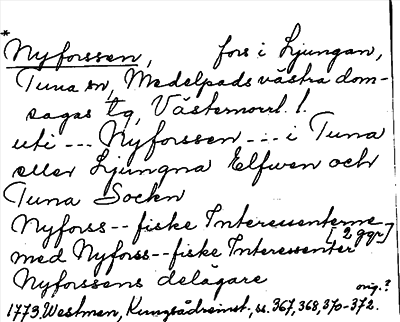 *
Nyforssen, fors i Ljungan,
Tuna sn, Medelpads västra dom-
sagas tg, Västernorrl. l.
uti --- Nyforssen --- i Tuna
eller Ljungna Elfwen och
Tuna Sockn
Nyforss--fiske Interessenterne
[2 ggr]
med Nyforss--fiske Interessenter
Nyforssens delägare
orig.?
1773. Westman, Kungsådreinst., ss. 367, 368, 370-372.